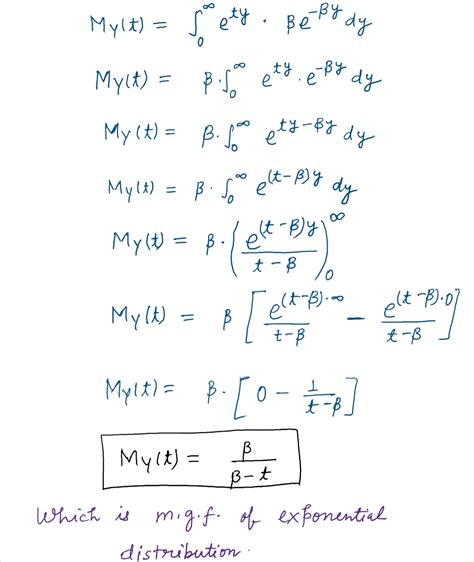 My(t) = ∫₀^∞ e^{ty} · βe^{-βy} dy
My(t) = β·∫₀^∞ e^{ty} · e^{-βy} dy
My(t) = β·∫₀^∞ e^{ty-βy} dy
My(t) = β·∫₀^∞ e^{(t-β)y} dy
My(t) = β·(e^{(t-β)y}/(t-β))₀^∞
My(t) = β[e^{(t-β)·∞}/(t-β) - e^{(t-β)·0}/(t-β)]
My(t) = β·[0 - 1/(t-β)]
My(t) = β/(β-t)
Which is m.g.f. of exponential
distribution.